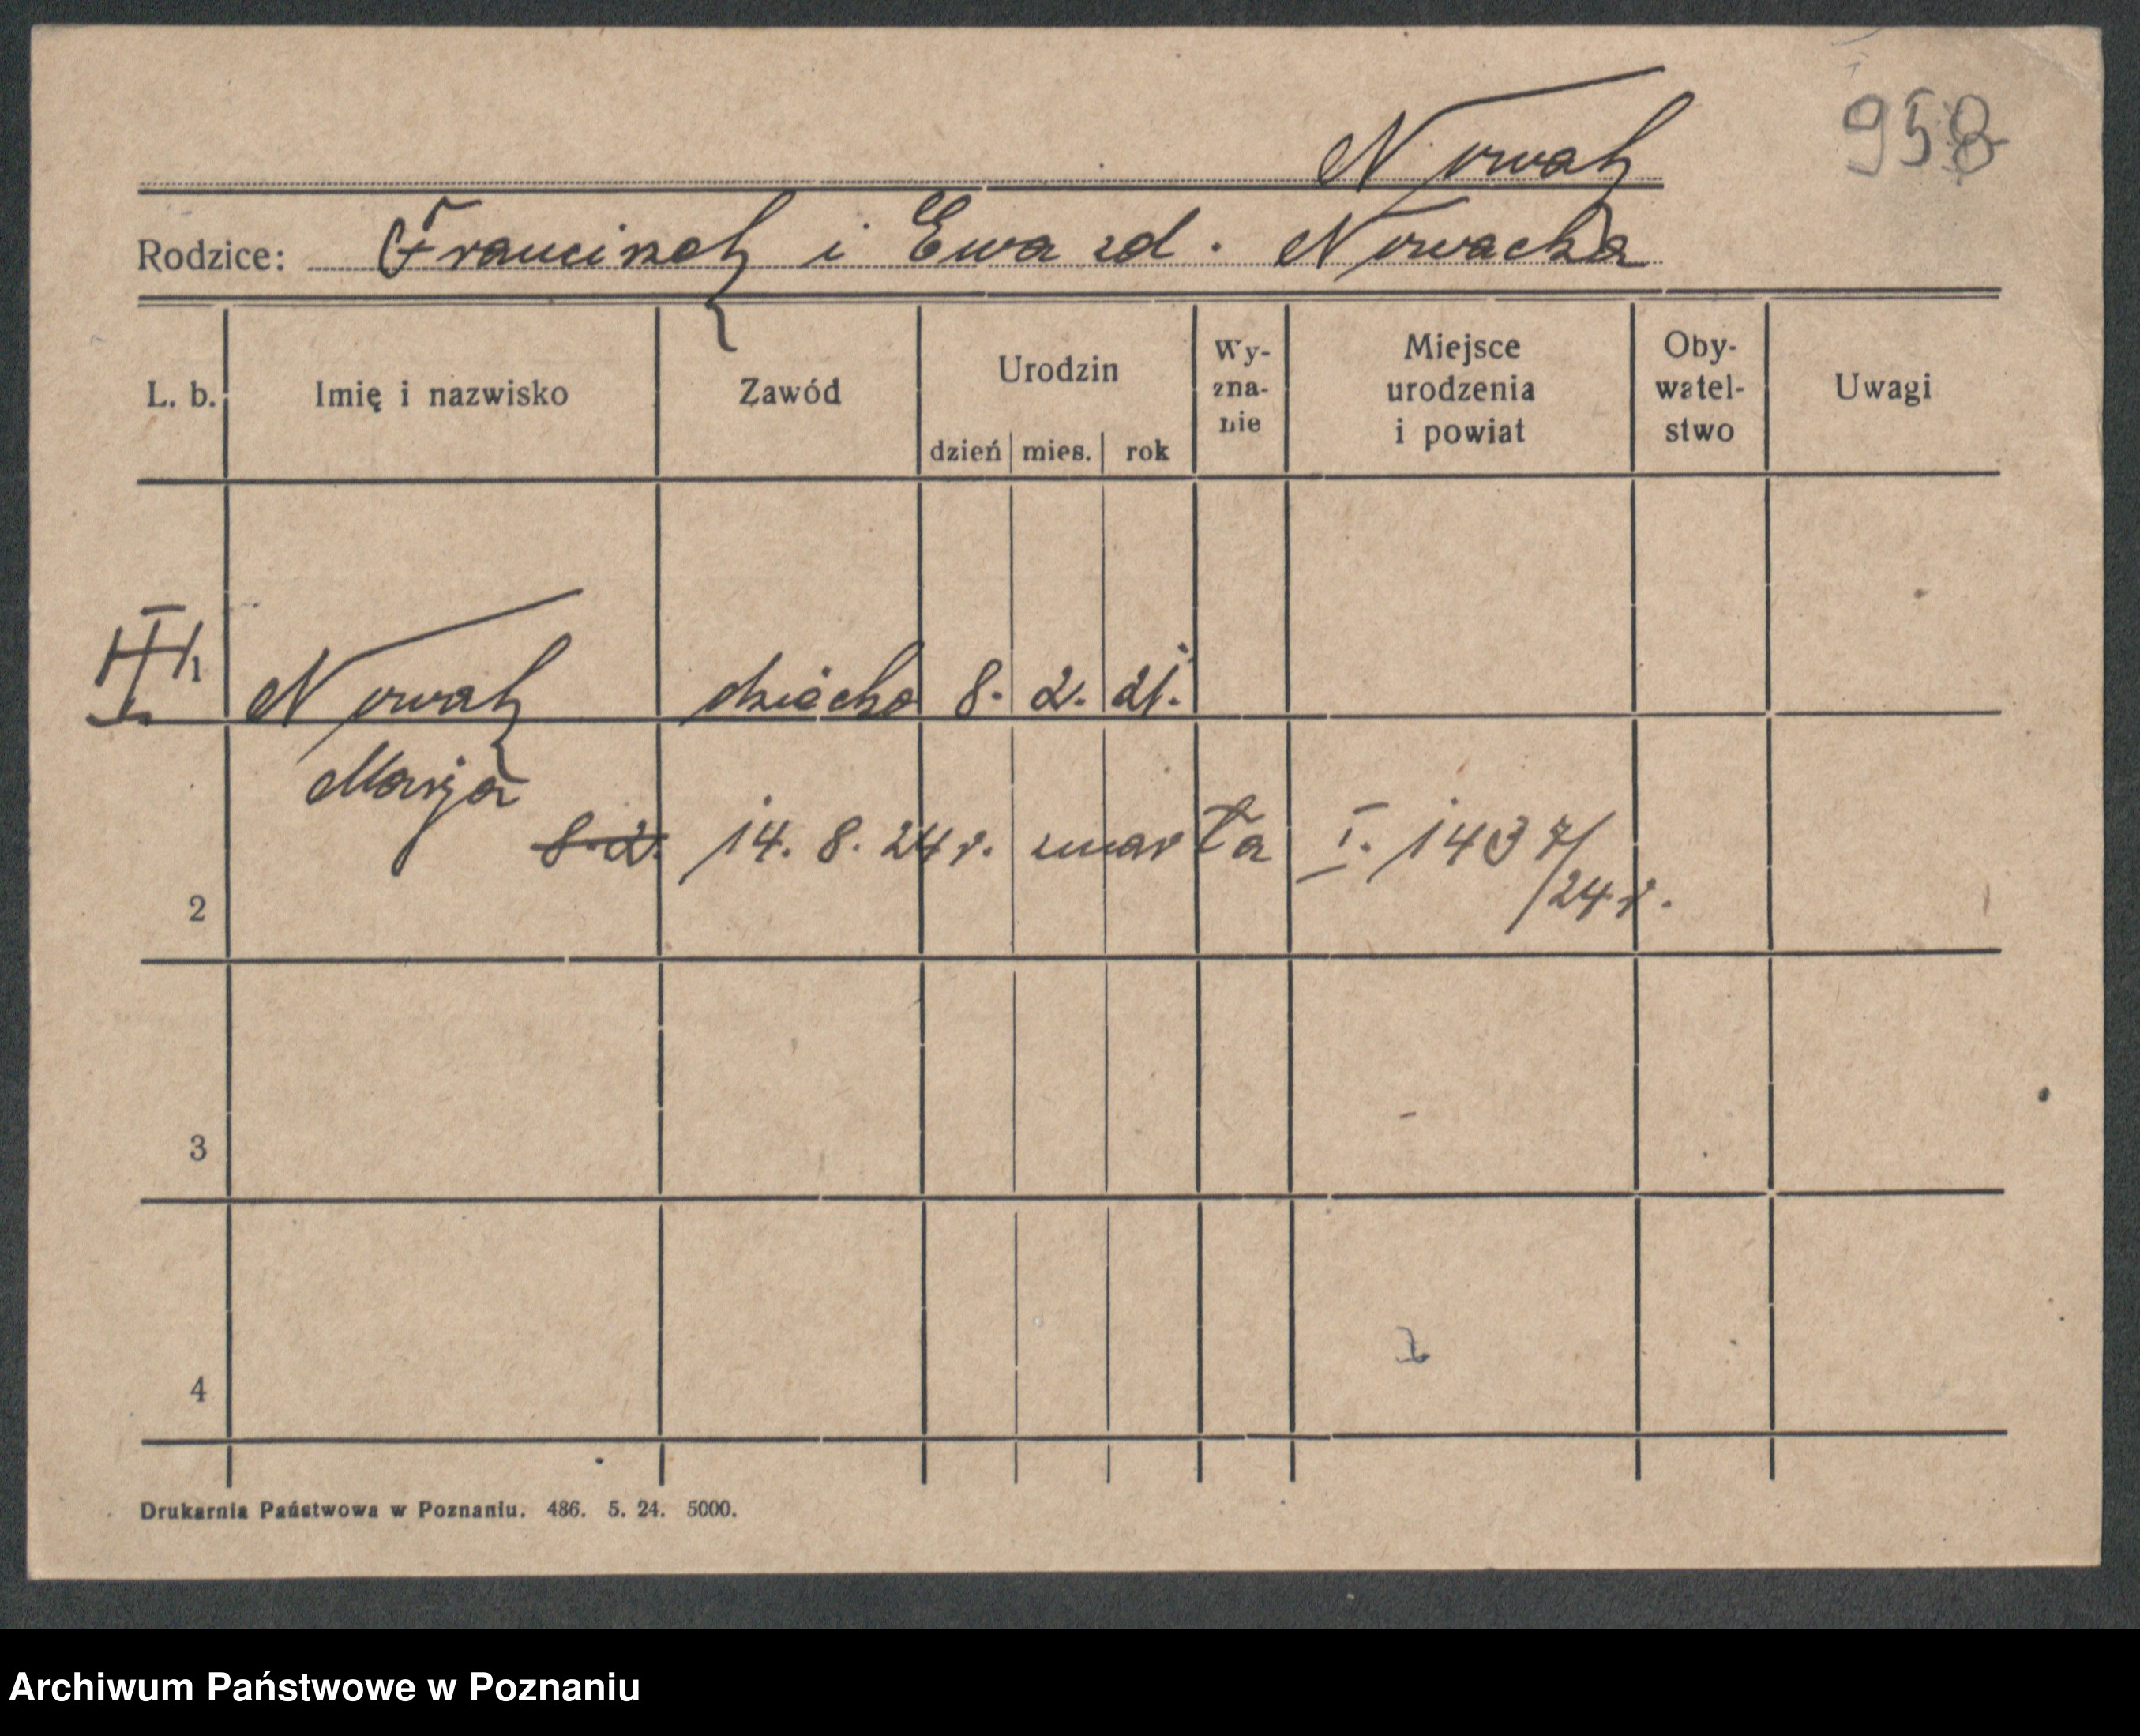 958
Nowak
Rodzice: Franciszek i Ewa zd. Nowacka
L. b. Imię i nazwisko Zawód Urodzin dzień mies. rok Wy-zna-nie Miejsce urodzenia i powiat Oby-watel-stwo Uwagi
Nowak dziecko 8. 2. 21.
Marja
8. 2. 14. 8. 24 r. zmarła I. 1437/
/24 r.
2
3
4
Drukarnia Państwowa w Poznaniu. 486. 5. 24. 5000.
Archiwum Państwowe w Poznaniu